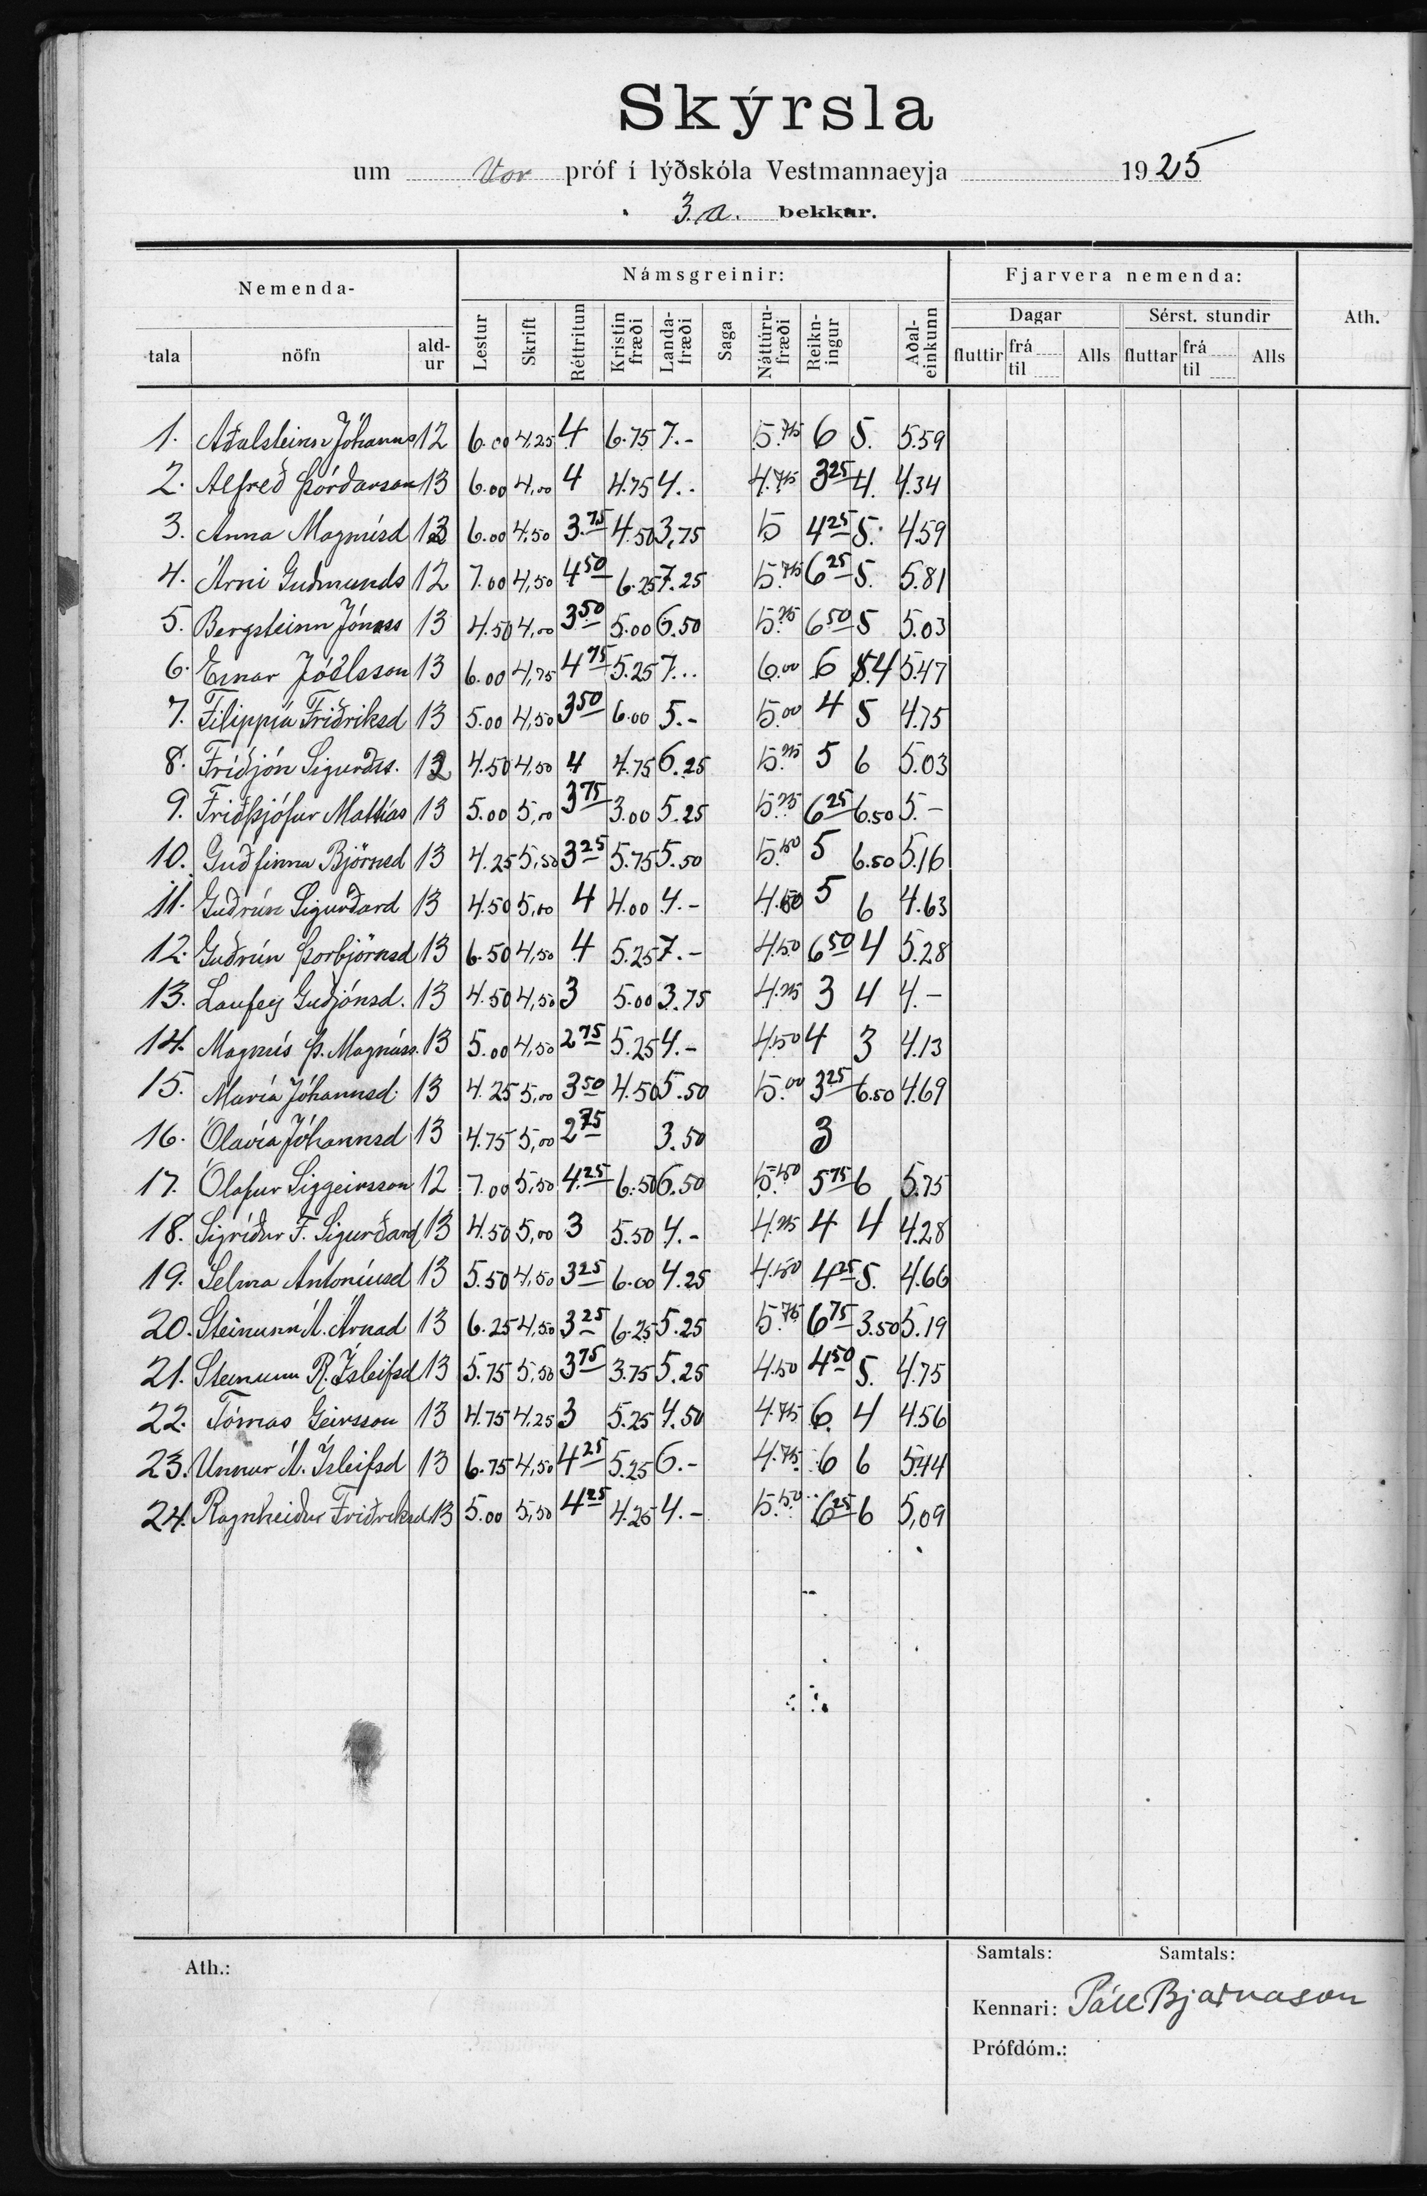 Skýrsla
um Vor próf í lýðskóla Vestmannaeyja 1925
3.a. bekkur.
Nemenda- Námsgreinir: Fjarvera nemenda: Ath.
tala nöfn ald-ur Lestur Skrift Réttritun Kristin fræði Landa-fræði Saga Náttúru-fræði Reikn-ingur Aðal-einkunn Dagar Sérst. stundir
fluttir frá til Alls fluttar frá til Alls
1. Aðalsteinn Jóhanns 12 6.00 4,25 4 6.75 7.- 5.75 6 5. 5.59
2. Alfreð Þórðarson 13 6.00 4,00 4 4.75 4.. 4.75 3 25 4. 4.34
3. Anna Magnúsd 13 6.00 4,50 3.75 4.50 3,75 5 4 25 5. 4.59
4. Árni Guðmunds 12 7.00 4,50 4 50 6.25 7.25 5.75 6 25 5. 5.81
5. Bergsteinn Jónass 13 4.50 4,00 3 50 5.00 6.50 5.25 6 50 5 5.03
6. Einar Jóelsson 13 6.00 4,75 4 75 5.25 7... 6.00 6 4 5.47
7. Filippía Friðriksd 13 5.00 4,50 3 50 6.00 5.- 5.00 4 5 4.75
8. Friðjón Sigurðss. 12 4.50 4,50 4 4.75 6.25 5.25 5 6 5.03
9. Friðþjófur Mattías 13 5.00 5,00 3 75 3.00 5.25 5.25 6 25 6.50 5.-
10. Guðfinna Björnsd 13 4.25 5,50 3 25 5.75 5.50 5.50 5 6.50 5.16
11. Guðrún Sigurðard 13 4.50 5,00 4 4.00 4.- 4.50 5 6 4.63
12. Guðrún Þorbjörnsd 13 6.50 4,50 4 5.25 7.- 4.50 6 50 4 5.28
13. Laufey Guðjónsd. 13 4.50 4,50 3 5.00 3.75 4.25 3 4 4.-
14. Magnús Þ. Magnúss. 13 5.00 4,50 2 75 5.25 4.- 4.50 4 3 4.13
15. María Jóhannsd. 13 4.25 5,00 3 50 4.50 5.50 5.00 3 25 6.50 4.69
16. Ólavía Jóhannsd 13 4.75 5,00 2 75 3.50 3
17. Ólafur Siggeirsson 12 7.00 5,50 4.25 6.50 6.50 5.50 5 75 6 5.75
18. Sigríður F. Sigurðard 13 4.50 5,00 3 5.50 4.- 4.25 4 4 4.28
19. Selma Antoníusd 13 5.50 4,50 3 25 6.00 4.25 4.50 4 25 5. 4.66
20. Steinunn Á. Árnad 13 6.25 4,50 3 25 6.25 5.25 5.75 6 75 3.50 5.19
21. Steinunn R. Ísleifsd 13 5.75 5,50 3 75 3.75 5.25 4.50 4 50 5. 4.75
22. Tómas Geirsson 13 4.75 4.25 3 5.25 4.50 4.75 6. 4 4.56
23. Unnur Á. Ísleifsd 13 6.75 4,50 4 25 5.25 6.- 4.75 6 6 5.44
24. Ragnheiður Friðriksd. 13 5.00 5,50 4 25 4.25 4.- 5.50 6 25 6 5,09
Ath.:
Samtals: Samtals:
Kennari: Páll Bjarnason
Prófdóm.: